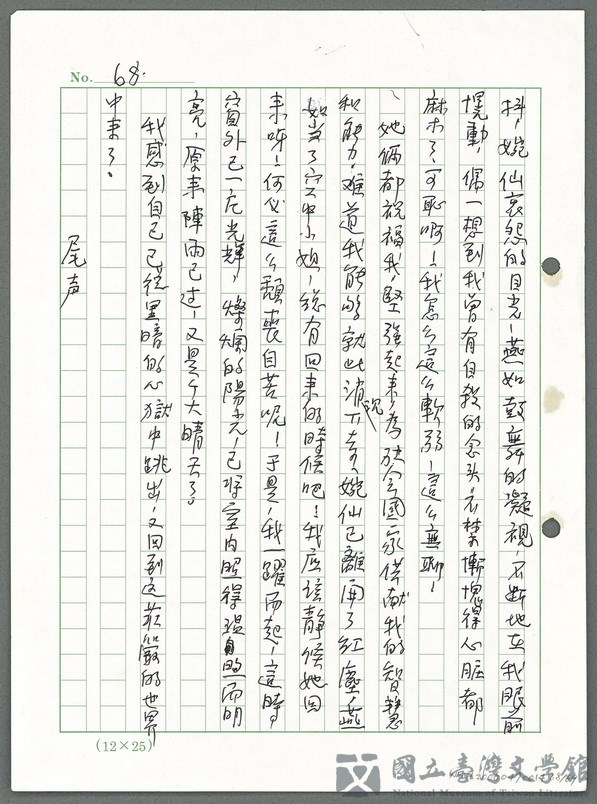 No. 68.
抖,婉仙哀怨的目光,燕如鼓舞的凝視,不斷地在我眼前
慌動,偶一想到我曾有自殺的念头,不禁慚愧得心脏都
麻木了,可恥啊!我怎么这么軟弱!這么無聊!
她倆都祝福我堅強起來,為社会国家供献我的智慧
和能力,难道我能够就此消沉下去,婉仙已離開了紅塵,燕
如当了空中小姐,総有回來的時候吧!我应该靜候她回
来呀!何必這么頹喪自苦呢!于是,我一躍而起,這時
窗外已一片光輝,燦爛的陽光,已将室内照得温的而明
亮,原来陣雨已过,又是个大晴天了。
我感到自己已從黑暗的心獄中跳出,又回到这莊嚴的世界
中来了。
尾声
(12×25)
國立臺灣文學館
National Museum of Taiwan Literature